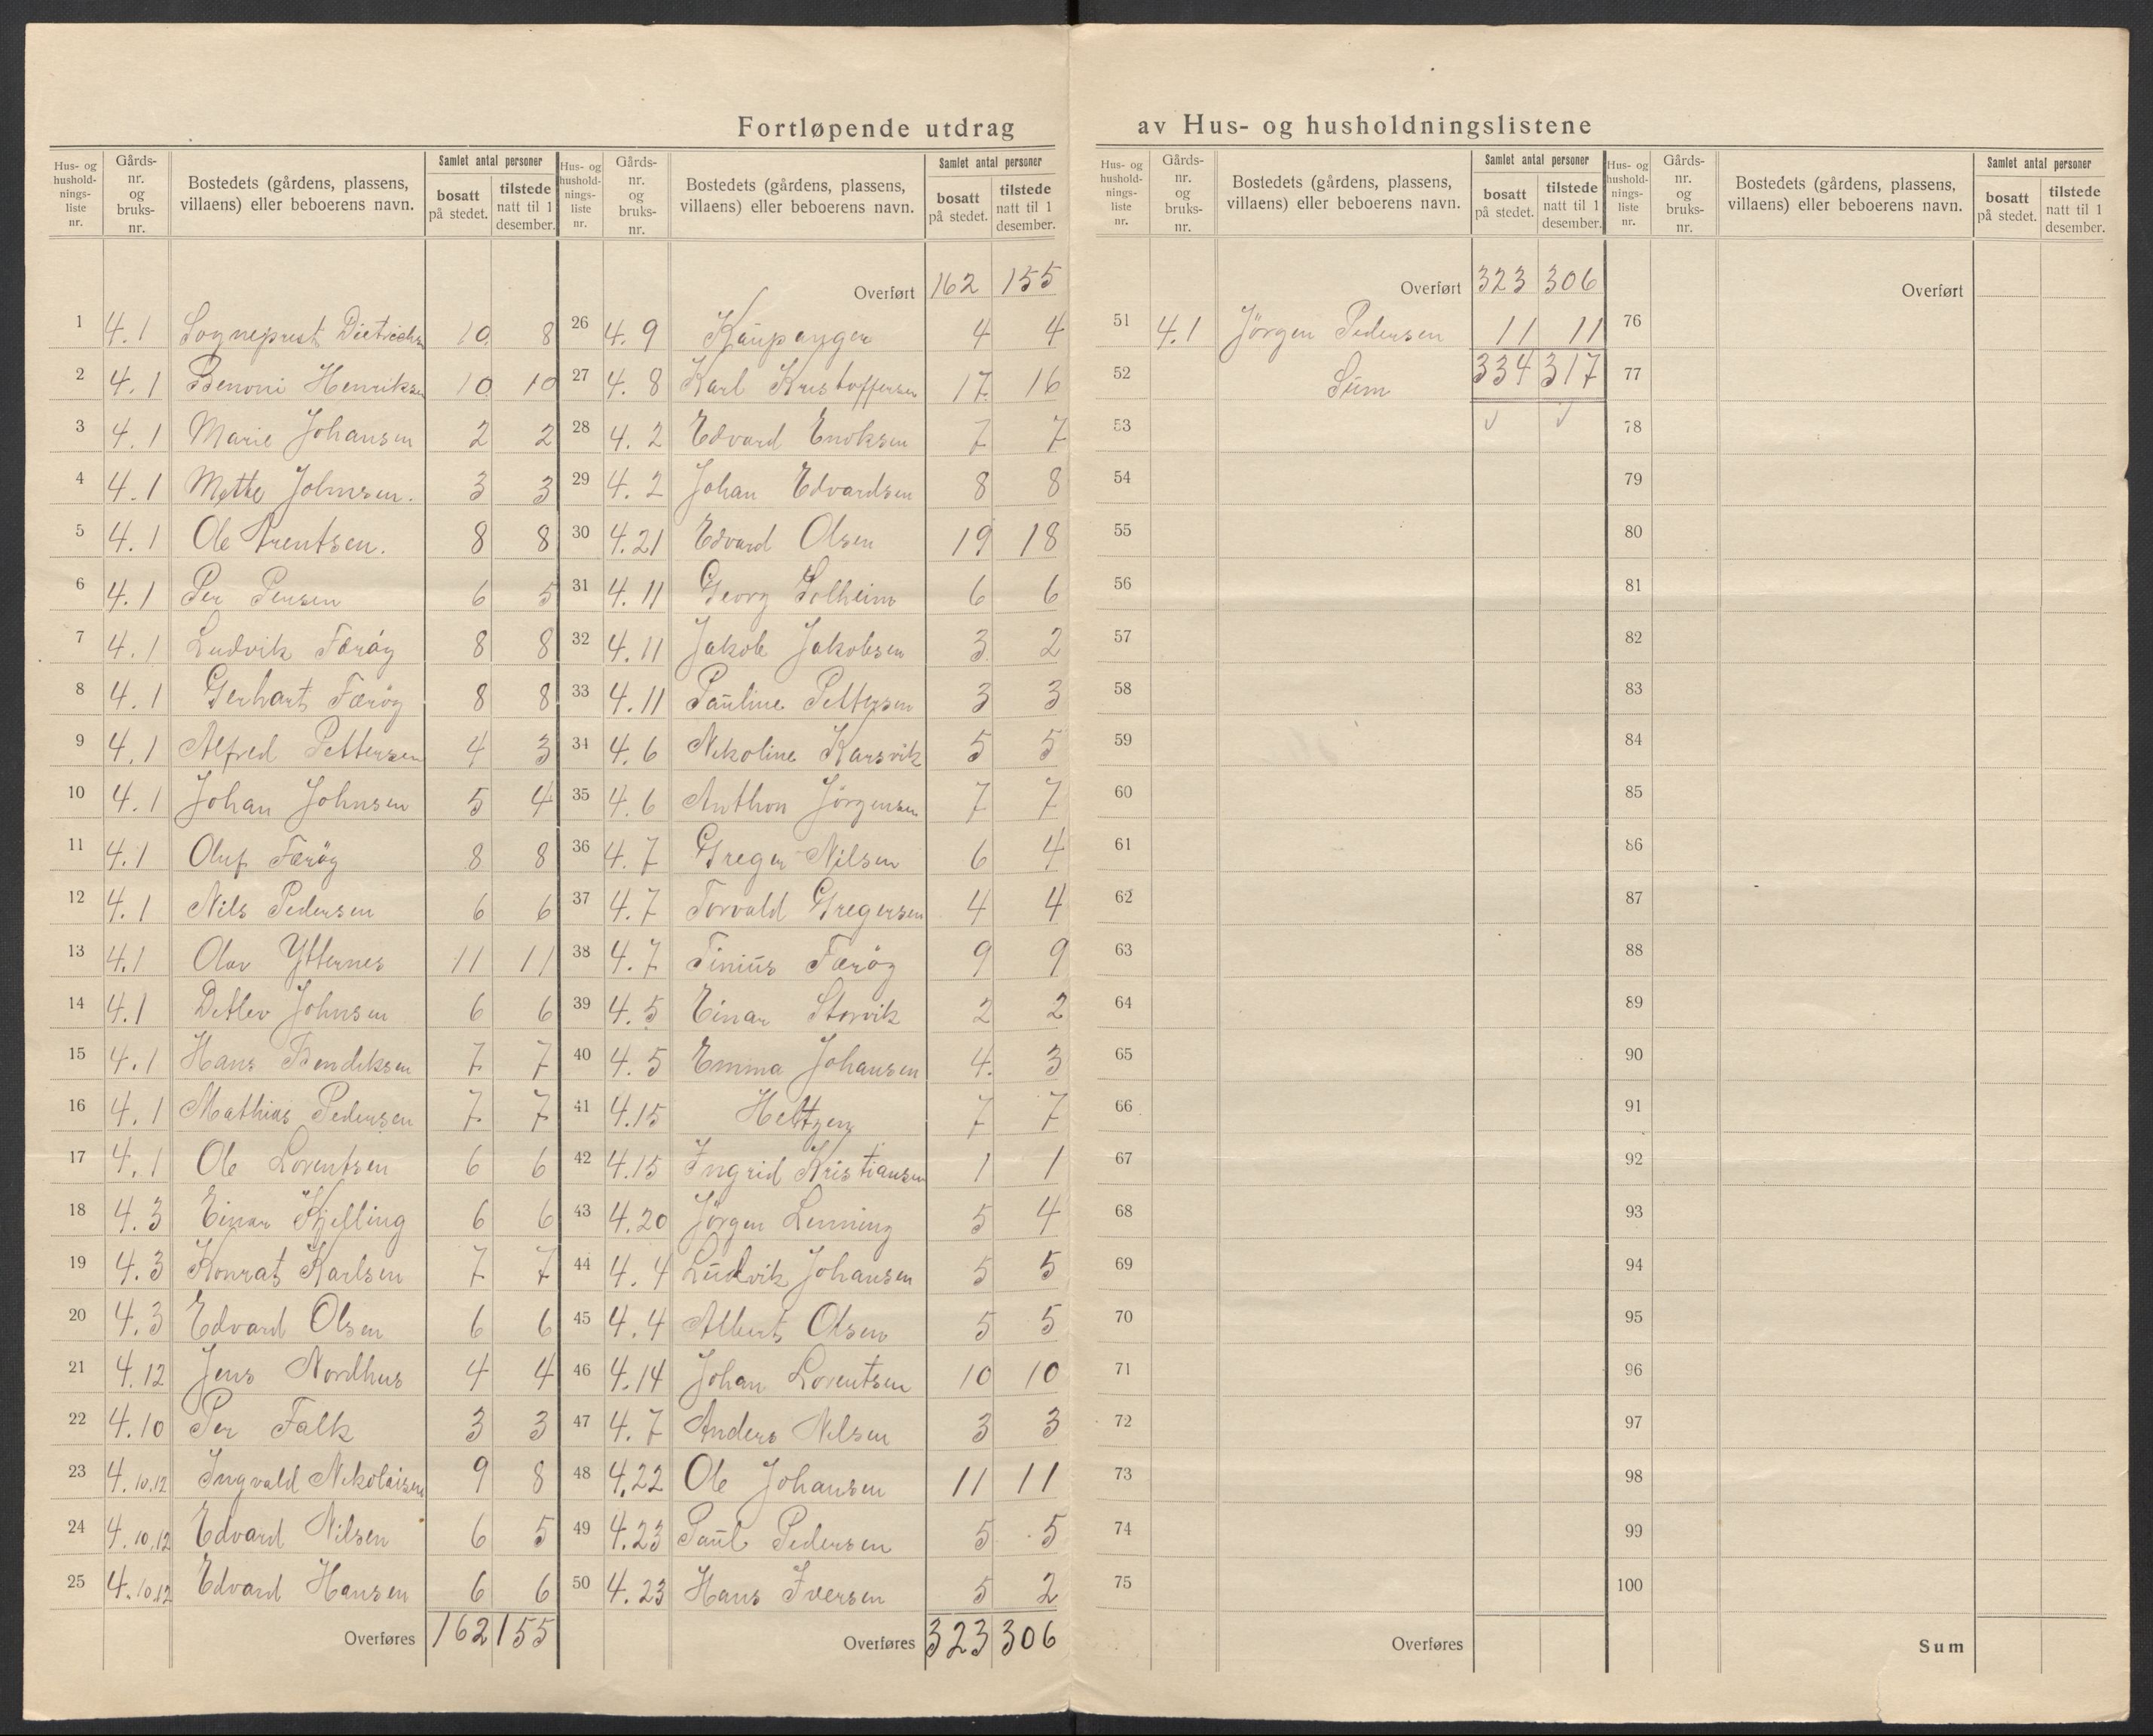 Fortløpende utdrag av Hus- og husholdningslistene
Hus- og husholdnings-liste nr. Gårds-nr. og bruks-nr. Bostedets (gårdens, plassens, villaens) eller beboerens navn. Samlet antal personer bosatt på stedet. tilstede natt til 1 desember.
1 4.1 Sogneprest Dietrichs 10 8
2 4.1 Benoni Henriksen 10 10
3 4.1 Marie Johansen 2 2
4 4.1 Mette Johnsen. 3 3
5 4.1 Ole Arentsen. 8 8
6 4.1 Per Pensen 6 5
7 4.1 Ludvik Færöy 8 8
8 4.1 Gerhart Færöy 8 8
9 4.1 Alfred Pettersen 4 3
10 4.1 Johan Johnsen 5 4
11 4.1 Oluf Færöy 8 8
12 4.1 Nils Pedersen 6 6
13 4.1 Olav Ytternes 11 11
14 4.1 Detlev Johnsen 6 6
15 4.1 Hans Bendiksen 7 7
16 4.1 Mathias Pedersen 7 7
17 4.1 Ole Lorentsen 6 6
18 4.3 Einar Kjelling 6 6
19 4.3 Konrat Karlsen 7 7
20 4.3 Edvard Olsen 6 6
21 4.12 Jens Nordhus 4 4
22 4.10 Per Falk 3 3
23 4.10.12 Ingvald Nikolaisen 9 8
24 4.10.12 Edvard Nilsen 6 5
25 4.10.12 Edvard Hansen 6 6
Overføres 162 155
Hus- og husholdnings-liste nr. Gårds-nr. og bruks-nr. Bostedets (gårdens, plassens, villaens) eller beboerens navn. Samlet antal personer bosatt på stedet. tilstede natt til 1 desember.
Overført 162 155
26 4.9 Kaupanger 4 4
27 4.8 Karl Kristoffersen 17 16
28 4.2 Edvard Enoksen 7 7
29 4.2 Johan Edvardsen 8 8
30 4.21 Edvard Olsen 19 18
31 4.11 Georg Solheim 6 6
32 4.11 Jakob Jakobsen 3 2
33 4.11 Pauline Pettersen 3 3
34 4.6 Nikoline Karsvik 5 5
35 4.6 Anthon Jörgensen 7 7
36 4.7 Greger Nilsen 6 4
37 4.7 Torvald Gregersen 4 4
38 4.7 Tinius Færöy 9 9
39 4.5 Einar Storvik 2 2
40 4.5 Emma Johansen 4. 3
41 4.15 Heltzen 7 7
42 4.15 Ingrid Kristiansen 1 1
43 4.20 Jörgen Lenning 5 4
44 4.4 Ludvik Johansen 5 5
45 4.4 Albert Olsen 5 5
46 4.14 Johan Lorentsen 10 10
47 4.7 Anders Nilsen 3 3
48 4.22 Ole Johansen 11 11
49 4.23 Paul Pedersen 5 5
50 4.23 Hans Iversen 5 2
Overføres 323 306
Hus- og husholdnings-liste nr. Gårds-nr. og bruks-nr. Bostedets (gårdens, plassens, villaens) eller beboerens navn. Samlet antal personer bosatt på stedet. tilstede natt til 1 desember.
Overført 323 306
51 4.1 Jörgen Pedersen 11 11
52 Sum 334 317
53
54
55
56
57
58
59
60
61
62
63
64
65
66
67
68
69
70
71
72
73
74
75
Overføres
Hus- og husholdnings-liste nr. Gårds-nr. og bruks-nr. Bostedets (gårdens, plassens, villaens) eller beboerens navn. Samlet antal personer bosatt på stedet. tilstede natt til 1 desember.
Overført
76
77
78
79
80
81
82
83
84
85
86
87
88
89
90
91
92
93
94
95
96
97
98
99
100
Sum